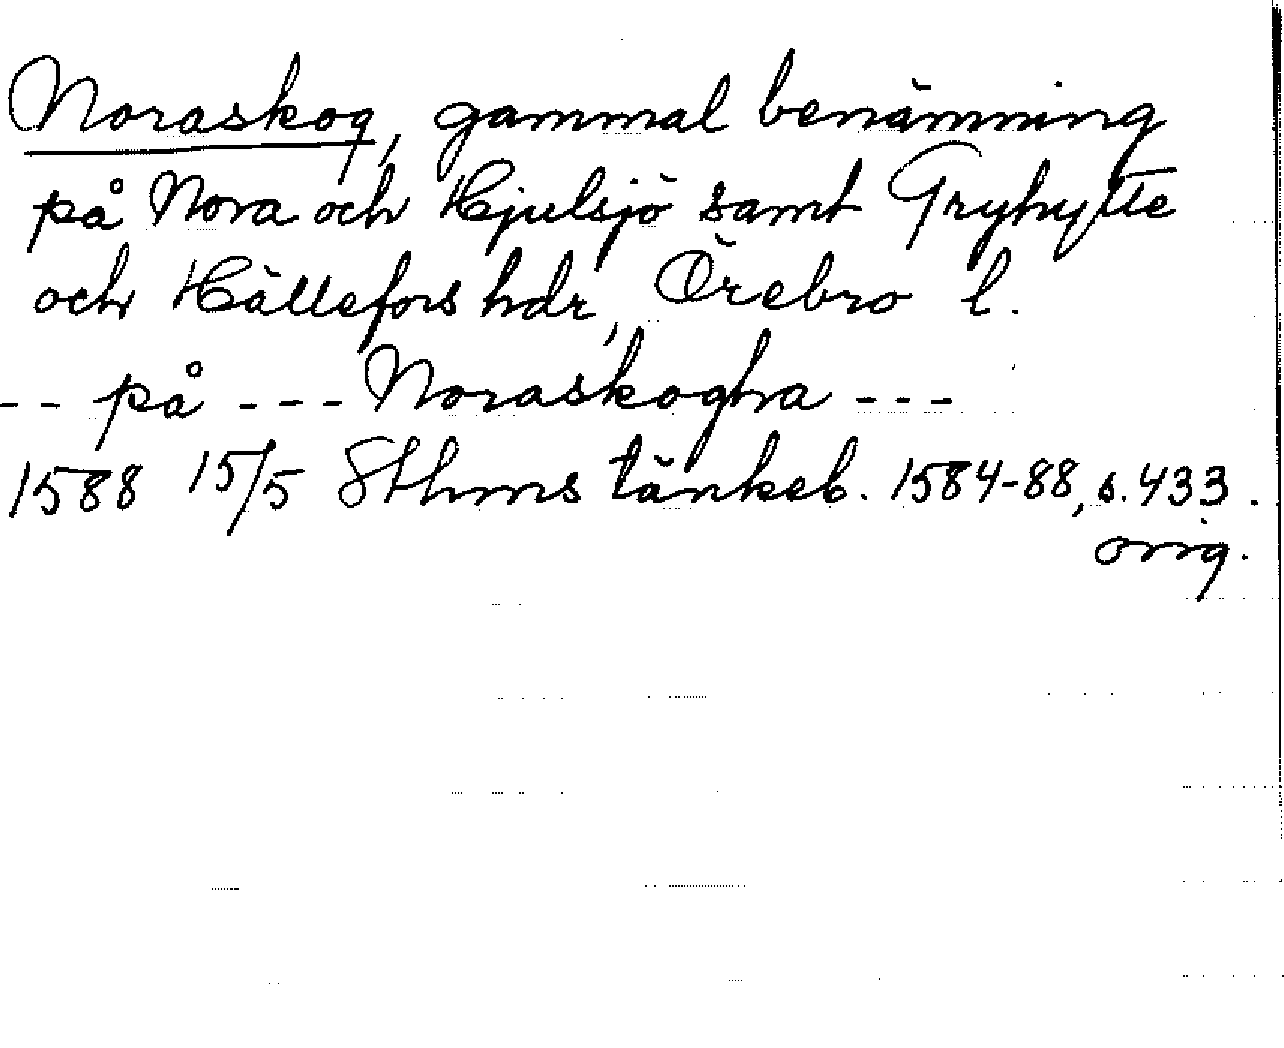 Noraskog, gammal benämning
på Nora och Hjulsjö samt Grythytte
och Hällefors hdr, Örebro l.
-- på --- Noraskogha ---
1588 15/5 Sthms tänkeb. 1584-88, s. 433.
orig.